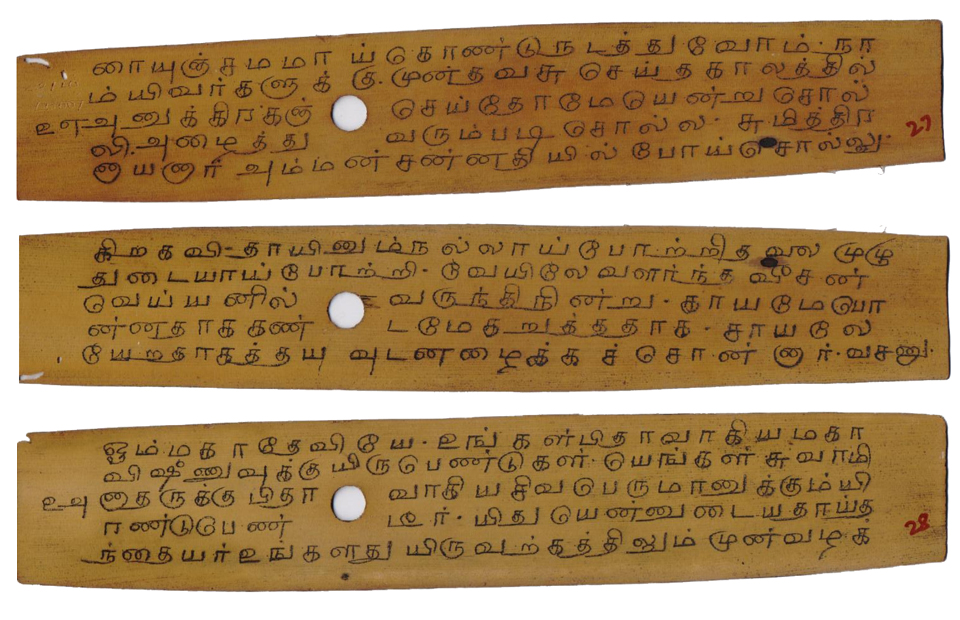 ரையுஞ்சமமா ய்கொண்டுநடத்துவோம். நா
ம்யிவர்களுக் கு. முன்தவசு செய்தகாலத்தில்
௨௭ அனுக்கிரகஞ் செய்தோமேயென்று சொல்
லி. அழைத்து வரும்படி சொல்ல. சுமித்திரை 27
யனார் அம்மன்சன்னதியில்போய்சொல்லு
கிறகவி-தாயினும்நல்லாய்போற்றிதவல முழு
துடையாய்போற்றி. வேயிலேவளர்ந்த வீசன்
வெய்யனில் வருந்திநின்று. காயமேபொ
ன்னதாககண் டமேகறுத்ததாக. சாயலே
யேறதாகத்தய வுடனழைக்கச் சொன்னார். வசனு.
ஓம்மகாதேவியே. உங்கள்பிதாவாகியமகா
விஷ்ணுவுக்கு யிருபெண்டுகள். யெங்கள் சுவாமி
௨௮ னதருக்கு பிதா வாகியசிவபெருமானுக்கும்யி
ரண்டுபேண் டீர். யிது யென்னுடையதாய்த 28
ந்தையர்உங்களது யிருவர்கத்திலும் முன்வழக்